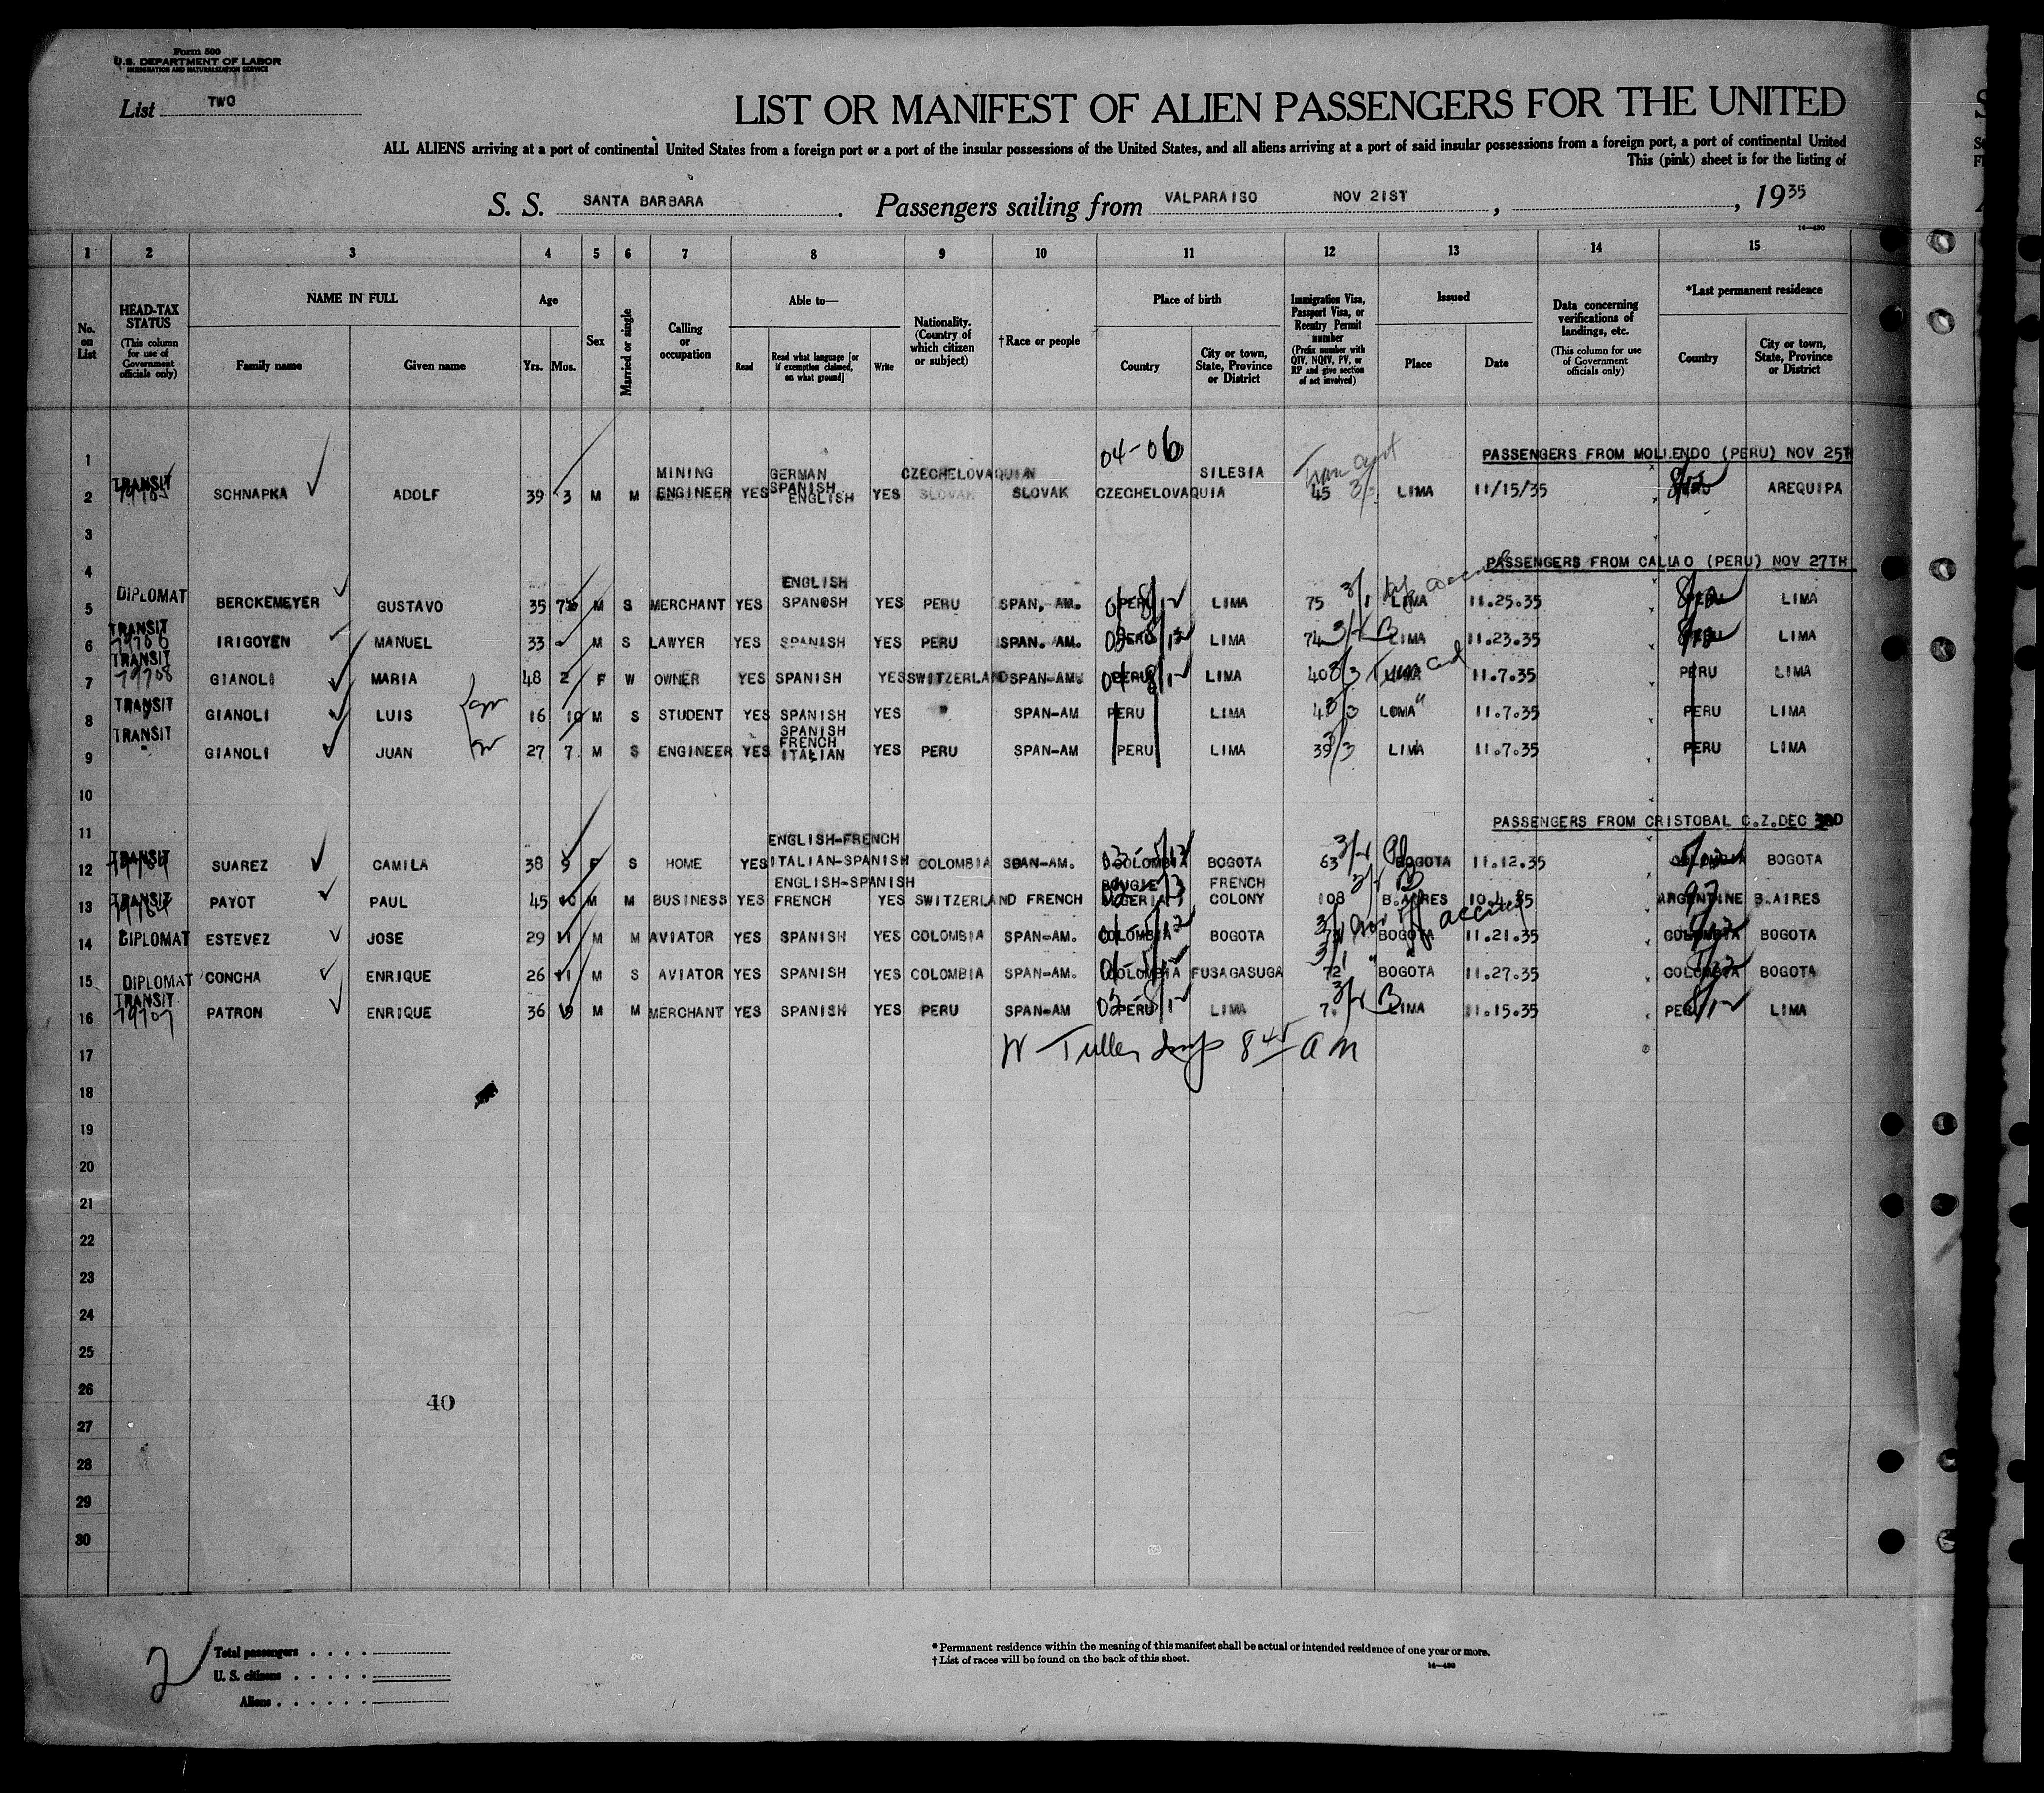 Form 500
U.S. DEPARTMENT OF LABOR
IMMIGRATION AND NATURALIZATION SERVICE
List TWO
LIST OR MANIFEST OF ALIEN PASSENGERS FOR THE UNITED
ALL ALIENS arriving at a port of continental United States from a foreign port or a port of the insular possessions of the United States, and all aliens arriving at a port of said insular possessions from a foreign port, a port of continental United
This (pink) sheet is for the listing of
S. S. SANTA BARBARA. Passengers sailing from VALPARAISO NOV 21ST, , 1935
16-430
1 2 3 4 5 6 7 8 9 10 11 12 13 14 15
No. on List
HEAD-TAX STATUS (This column for use of Government officials only)
NAME IN FULL
Family name Given name
Age
Yrs. Mos.
Sex
Married or single
Calling or occupation
Able to—
Read Read what language [or if exemption claimed, on what ground] Write
Nationality. (Country of which citizen or subject)
†Race or people
Place of birth
Country City or town, State, Province or District
Immigration Visa, Passport Visa, or Reentry Permit number (Prefix number with QIV, NQIV, PV, or RP and give section of act involved)
Issued
Place Date
Data concerning verifications of landings, etc. (This column for use of Government officials only)
*Last permanent residence
Country City or town, State, Province or District
1 04-06 PASSENGERS FROM MOLLENDO (PERU) NOV 25T
MINING GERMAN CZECHELOVAQUIAN SILESIA
2 TRANSIT SCHNAPKA ADOLF 39 3 M M ENGINEER YES SPANISH ENGLISH YES SLOVAK SLOVAK CZECHELOVAQUIA 45 LIMA 11/15/35 AREQUIPA
3
4 PASSENGERS FROM CALLAO (PERU) NOV 27TH
ENGLISH
5 DIPLOMAT BERCKEMEYER GUSTAVO 35 M S MERCHANT YES SPANOSH YES PERU SPAN. AM. PERU LIMA 75 3/1 LIMA 11.25.35 PERU LIMA
6 TRANSIT IRIGOYEN MANUEL 33 M S LAWYER YES SPANISH YES PERU SPAN. AM. PERU LIMA 74 LIMA 11.23.35 PERU LIMA
7 TRANSIT 79708 GIANOLI MARIA 48 2 F W OWNER YES SPANISH YES SWITZERLAND SPAN-AM. PERU LIMA 40 LIMA 11.7.35 PERU LIMA
8 TRANSIT " GIANOLI LUIS 16 10 M S STUDENT YES SPANISH YES " SPAN-AM PERU LIMA LOMA 11.7.35 PERU LIMA
SPANISH
9 TRANSIT " GIANOLI JUAN 27 7 M S ENGINEER YES FRENCH ITALIAN YES PERU SPAN-AM PERU LIMA 39 LIMA 11.7.35 PERU LIMA
10
11 PASSENGERS FROM CRISTOBAL C.Z. DEC 3RD
ENGLISH-FRENCH
12 TRANSIT SUAREZ CAMILA 38 9 F S HOME YES ITALIAN-SPANISH COLOMBIA SPAN-AM. COLOMBIA BOGOTA 63 BOGOTA 11.12.35 COLOMBIA BOGOTA
ENGLISH-SPANISH BOUGIE FRENCH
13 TRANSIT PAYOT PAUL 45 10 M M BUSINESS YES FRENCH YES SWITZERLAND FRENCH ALGERIA COLONY 108 B.AIRES 10.4.35 ARGENTINE B.AIRES
14 DIPLOMAT ESTEVEZ JOSE 29 11 M M AVIATOR YES SPANISH YES COLOMBIA SPAN-AM. COLOMBIA BOGOTA BOGOTA 11.21.35 COLOMBIA BOGOTA
15 DIPLOMAT CONCHA ENRIQUE 26 11 M S AVIATOR YES SPANISH YES COLOMBIA SPAN-AM. COLOMBIA FUSAGASUGA 72 BOGOTA 11.27.35 COLOMBIA BOGOTA
16 TRANSIT 79707 PATRON ENRIQUE 36 M M MERCHANT YES SPANISH YES PERU SPAN-AM PERU LIMA LIMA 11.15.35 PERU LIMA
17 8 45 AM
18
19
20
21
22
23
24
25
26
40
27
28
29
30
2
Total passengers
U. S. citizens
Aliens
* Permanent residence within the meaning of this manifest shall be actual or intended residence of one year or more.
† List of races will be found on the back of this sheet.
14-430